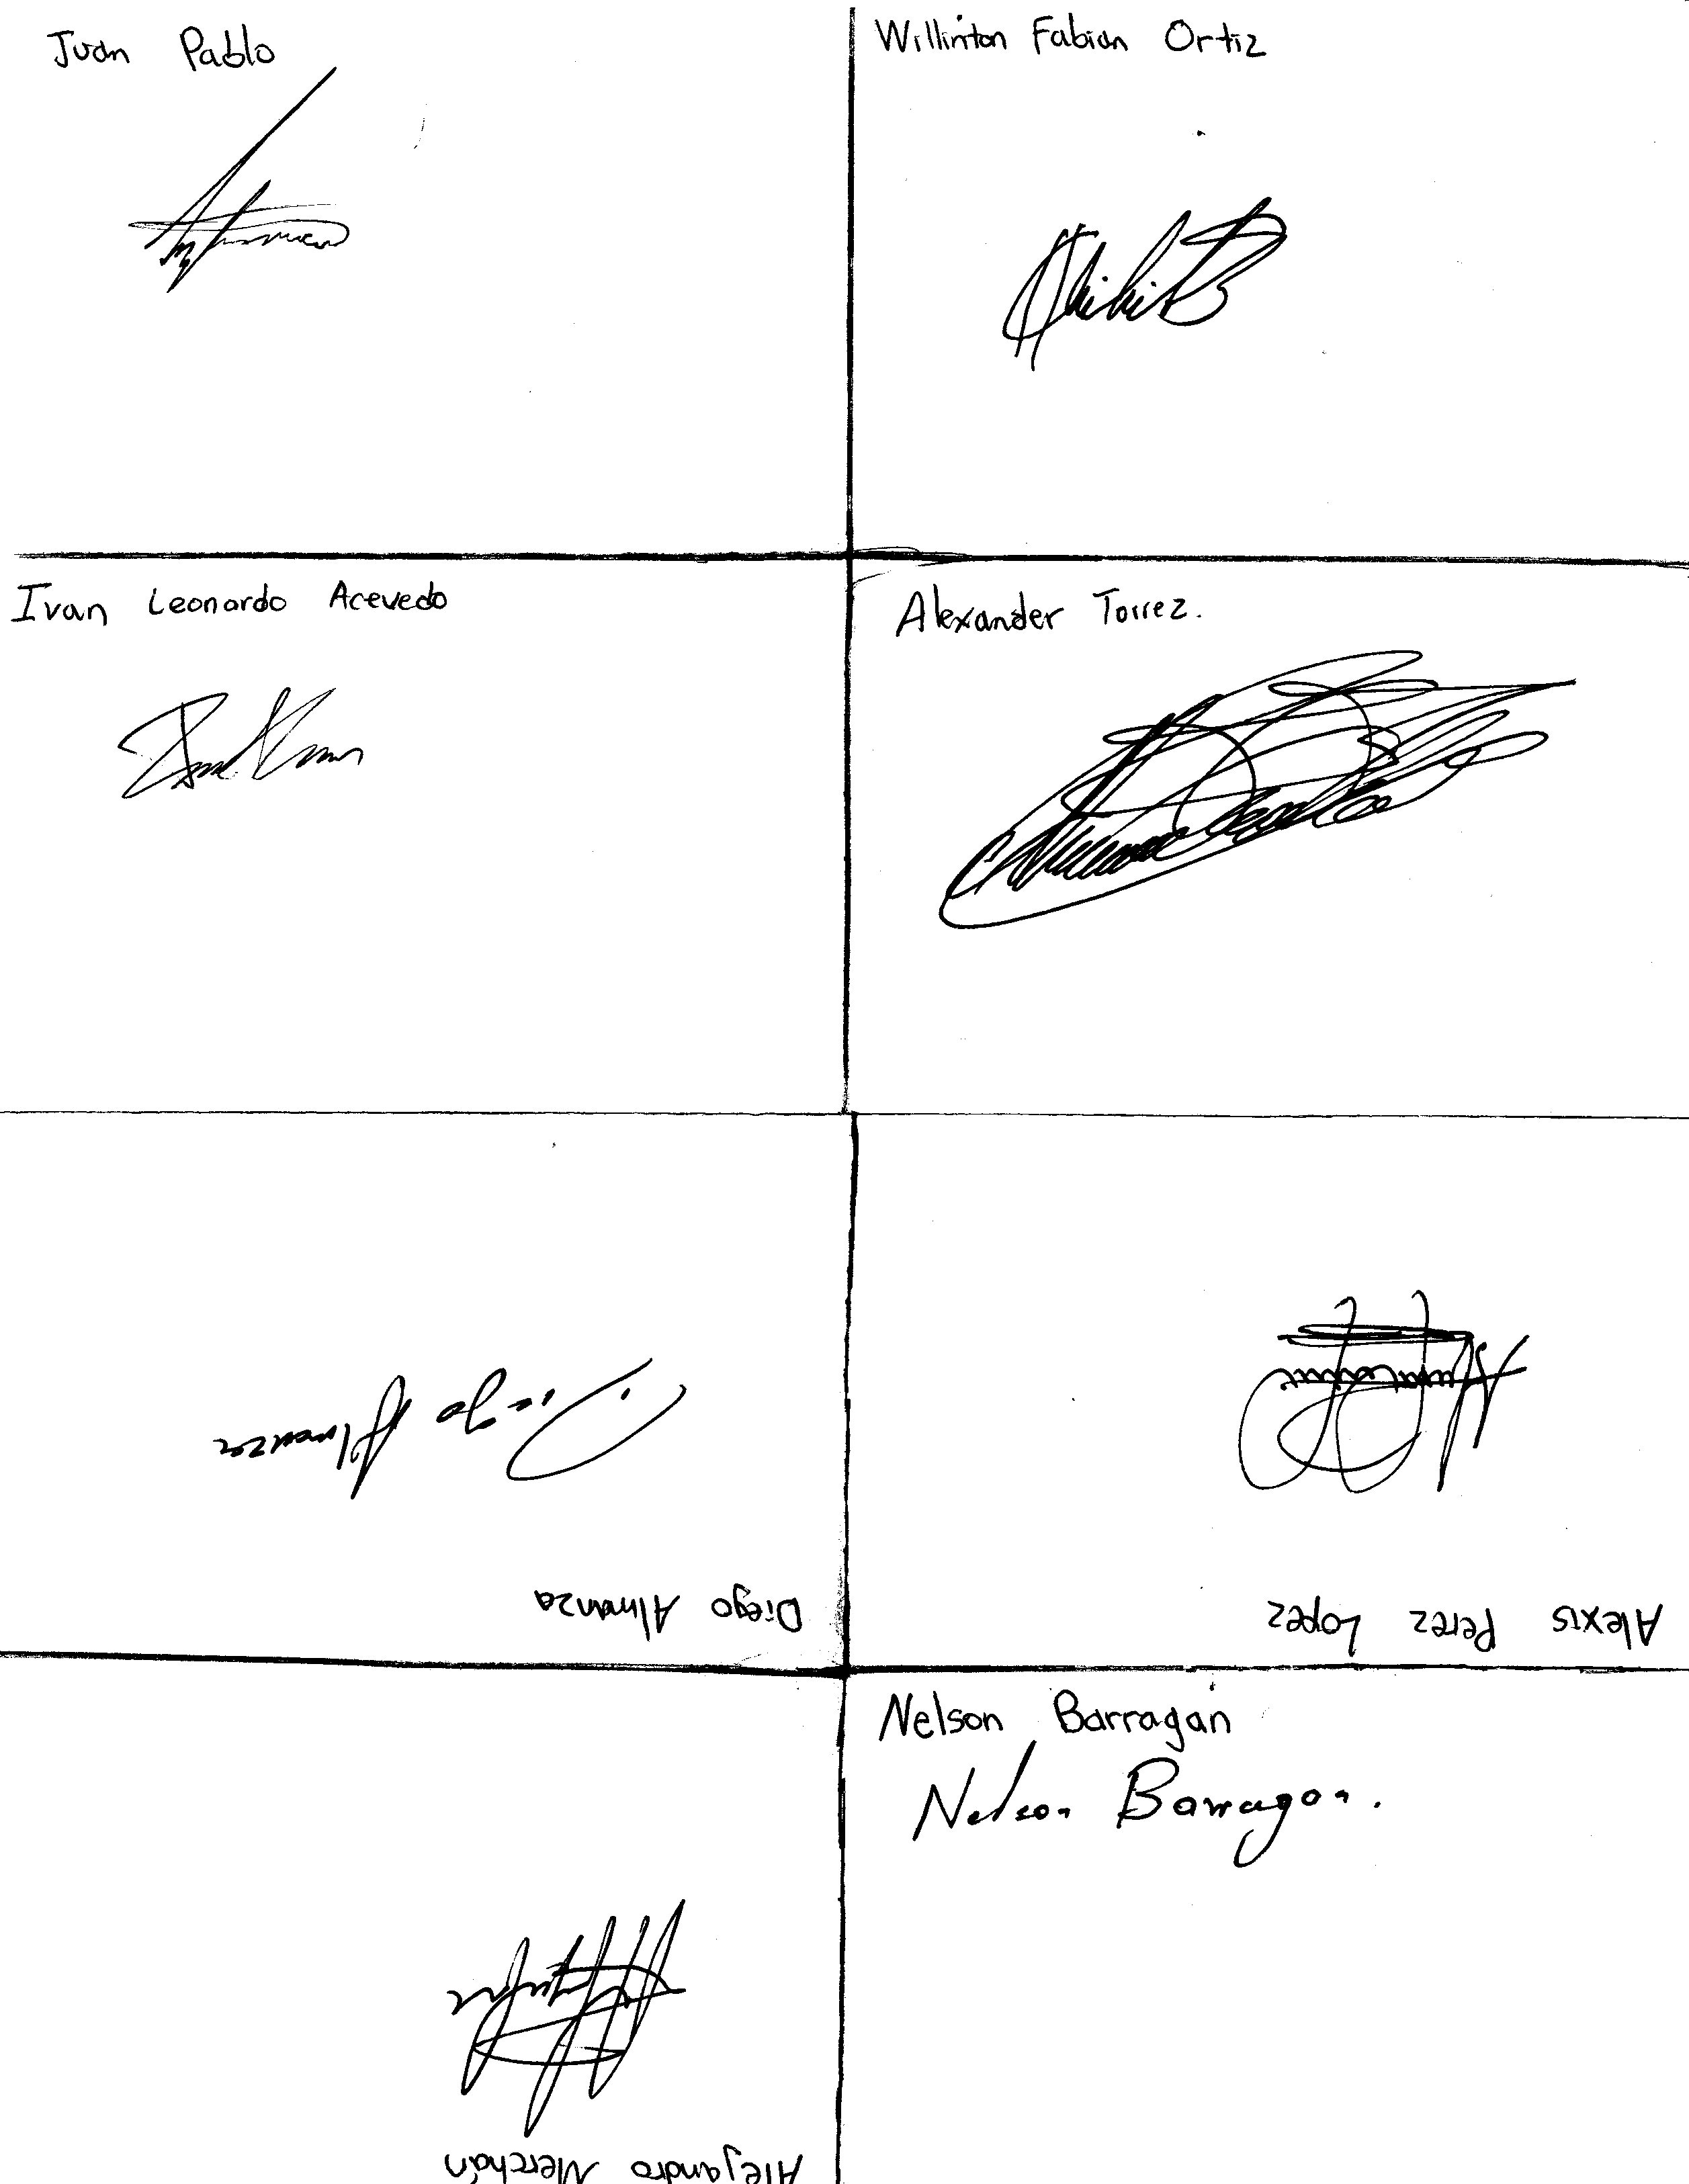 Juan Pablo
Willinton Fabian Ortiz
Ivan Leonardo Acevedo
Alexander Torrez.
Diego Almanza
Diego Almanza
Alexis Perez Lopez
Nelson Barragán
Nelson Barragan.
Alejandro Merchán